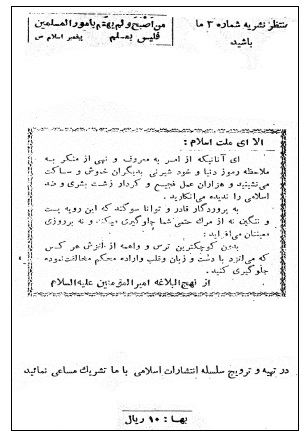 منتظر نشریه شماره ۳ ما
باشید
من اصبح ولم یهتم بامور المسلمین
فلیس بمسلم پیغمبر اسلام ص
الا ای ملت اسلام :
ای آنانیکه از امر به معروف و نهی از منکر به
ملاحظه رموز دنیا و خود شیرنی بدیگران خموش و ساکت
می‌نشینید و هزاران عمل فجیع و کردار زشت بشری و ضد
اسلامی را ندیده می‌انگارید .
به پروردگار قادر و توانا سوگند که این رویه پست
و ننگین نه از مرگ حتمی شما جلوگیری میکند و نه بروزی
معینتان می‌افزاید :
بدون کوچکترین ترس و واهمه از لغزش هر کس
که می‌لغزد با دست و زبان و قلب واراده محکم مخالفت‌نموده
جلوگیری کنید .
از نهج البلاغه امیر المؤمنین علیه السلام
در تهیه و ترویج سلسله انتشارات اسلامی با ما تشریک مساعی نمائید
بها : ۱۰ ریال